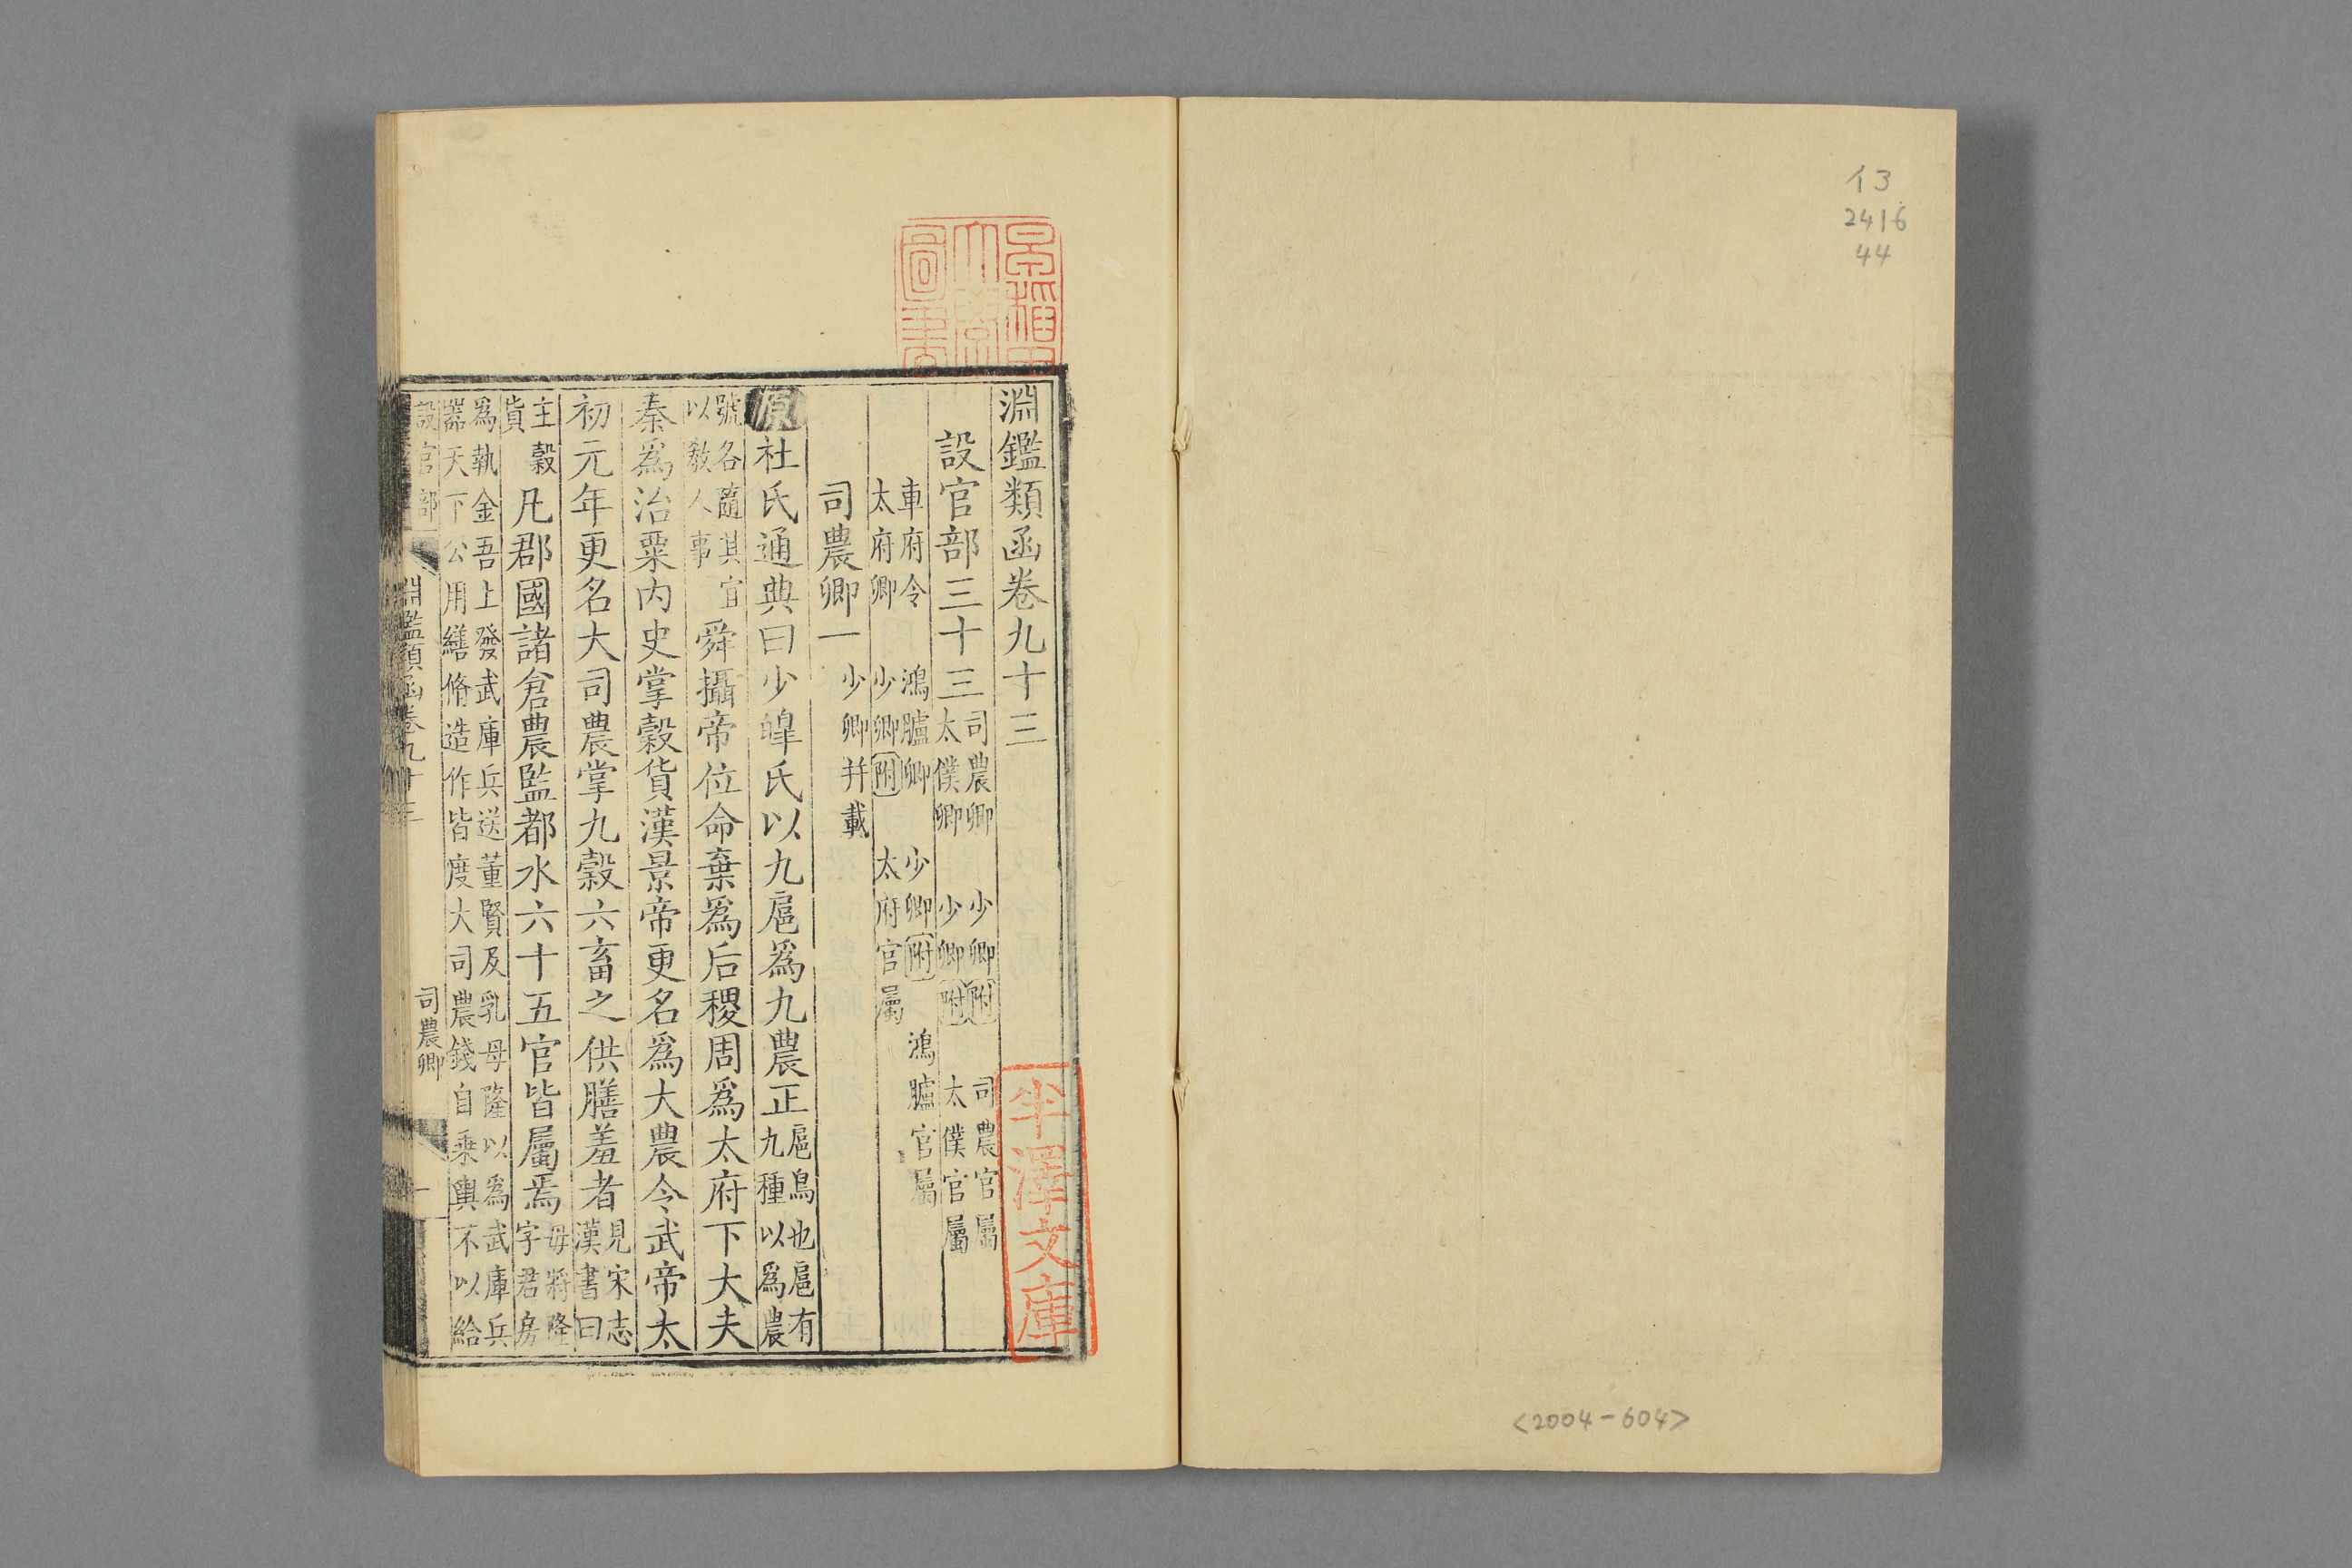 イ3
2416
44
<2004-604>
早稲田
大學
圖書
半澤文庫
淵鑑類函卷九十三
設官部三十三
司農卿 少卿附 司農官屬
太僕卿 少卿附 太僕官屬
車府令 鴻臚卿 少卿附 鴻臚官屬
太府卿 少卿附 太府官屬
司農卿一 少卿并載
原 杜氏通典曰少皥氏以九扈爲九農正 扈鳥也扈有
九種以爲農
號各隨其宜
以敎人事 舜攝帝位命棄爲后稷周爲太府下大夫
秦爲治粟内史掌穀貨漢景帝更名爲大農令武帝太
初元年更名大司農掌九穀六畜之供膳羞者 見宋志
漢書曰
主穀
貨 凡郡國諸倉農監都水六十五官皆屬焉 毋將隆
字君房
爲執金吾上發武庫兵送董賢及乳母隆以爲武庫兵
器天下公用繕脩造作皆度大司農錢自乘輿不以給
設官部 淵鑑類函卷九十三 司農卿 一